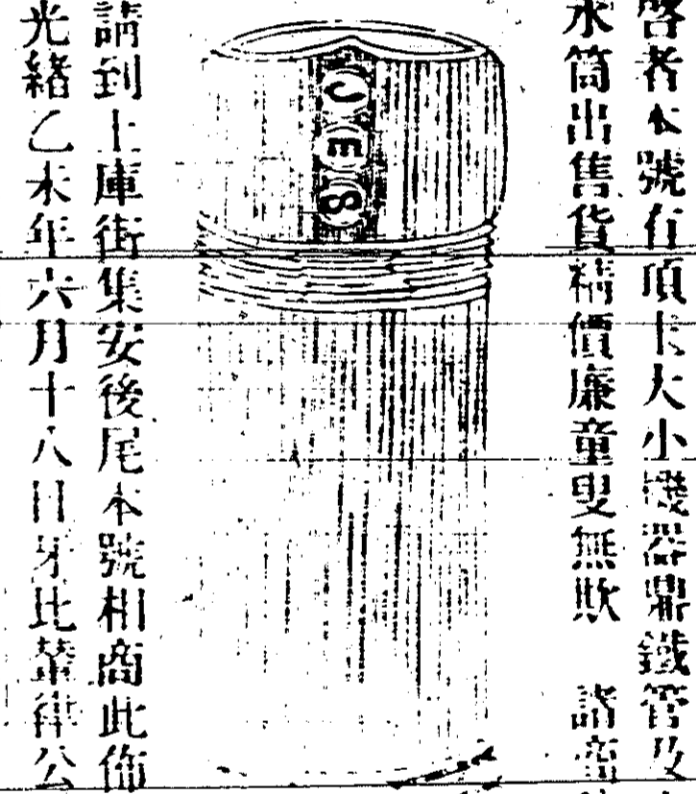 啓者本號有頂上大小機器鼎鐵管及
水筒出售貨精價廉童叟無欺 諸商
J E S
請到土庫街集安後尾本號相商此佈
光緒乙未年六月十八日牙比華律公